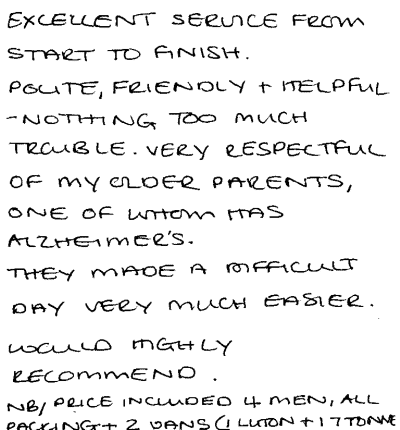 EXCELLENT SERVICE FROM
START TO FINISH.
POLITE, FRIENDLY + HELPFUL
-NOTHING TOO MUCH
TROUBLE. VERY RESPECTFUL
OF MY OLDER PARENTS,
ONE OF WHOM HAS
ALZHEIMER'S.
THEY MADE A DIFFICULT
DAY VERY MUCH EASIER.
WOULD HIGHLY
RECOMMEND.
NB/ PRICE INCLUDED 4 MEN, ALL
PACKING + 2 VANS (1 LUTON + 1 7 TONNE